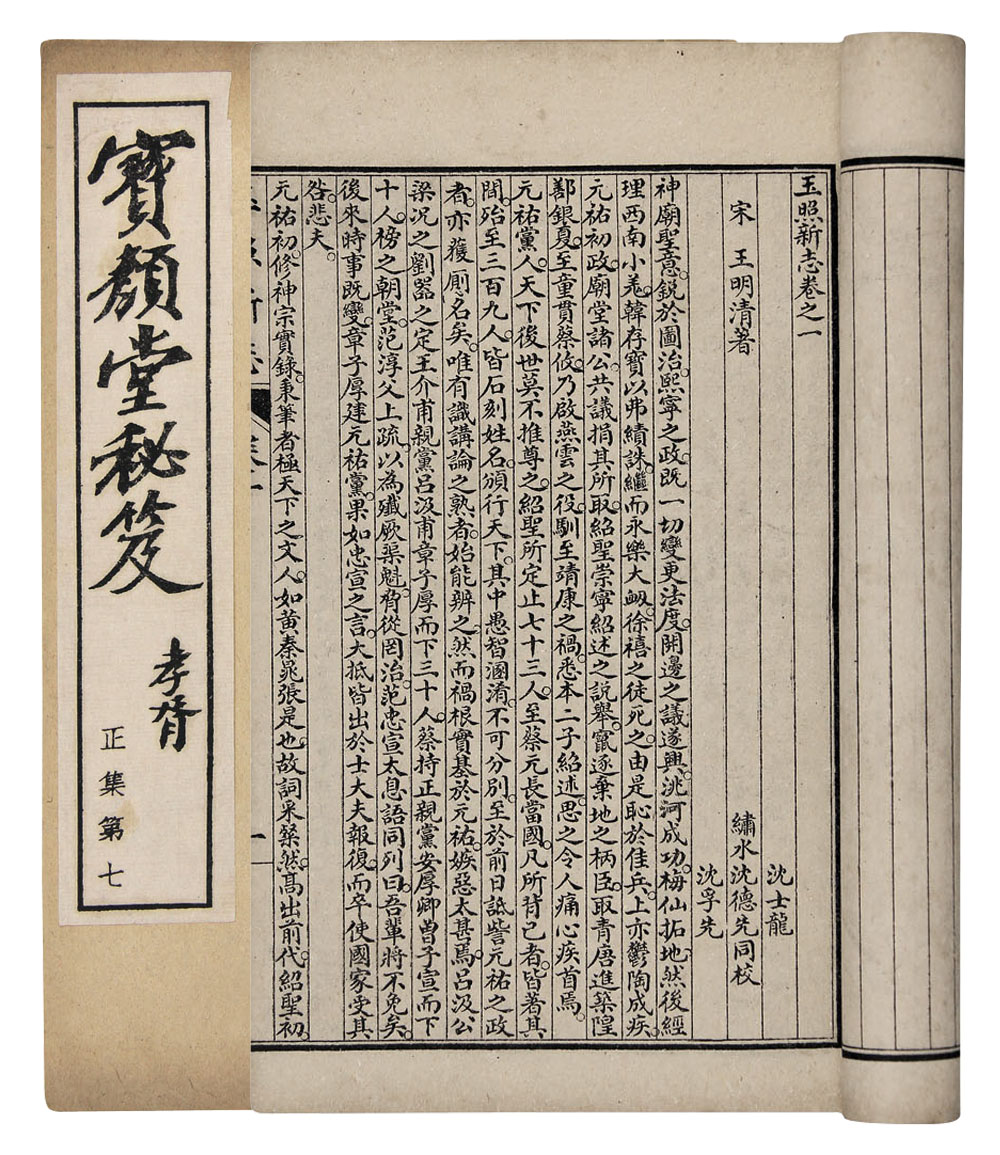 寶顏堂秘笈
孝胥
正集第七
玉照新志卷之一
宋　王明清著
沈士龍
繡水沈德先同校
沈孚先
神廟聖意。銳於圖治。熙寧之政。既一切變更法度。開邊之議遂興。洮河成功。梅仙拓地。然後經
理西南小羌。韓存寶以弗績誅。繼而永樂大衄。徐禧之徒死之。由是恥於佳兵。上亦鬱陶成疾。
元祐初。政廟堂諸公。共議捐其所取。紹聖崇寧紹述之說舉。竄逐棄地之柄臣。取青唐進築隍
鄯銀夏。至童貫蔡攸。乃啟燕雲之役。馴至靖康之禍。悉本二子紹述。思之令人痛心疾首焉。
元祐黨人。天下後世莫不推尊之。紹聖所定止七十三人。至蔡元長當國。凡所背己者。皆著其
間。殆至三百九人。皆石刻姓名。頒行天下。其中愚智溷淆。不可分別。至於前日詆訾元祐之政
者。亦獲廁名矣。唯有識講論之熟者。始能辨之。然而禍根實基於元祐。嫉惡太甚焉。呂汲公
梁況之劉器之定王介甫親黨呂汲甫章子厚而下三十人。蔡持正親黨安厚卿曾子宣而下
十人。榜之朝堂。范淳父上疏以為殲厥渠魁。脅從罔治。范忠宣太息語同列曰。吾輩將不免矣。
後來時事既變。章子厚建元祐黨。果如忠宣之言。大抵皆出於士大夫報復。而卒使國家受其
咎。悲夫。
元祐初。修神宗實錄。秉筆者極天下之文人。如黃秦晁張是也。故詞采粲然。高出前代。紹聖初。
一